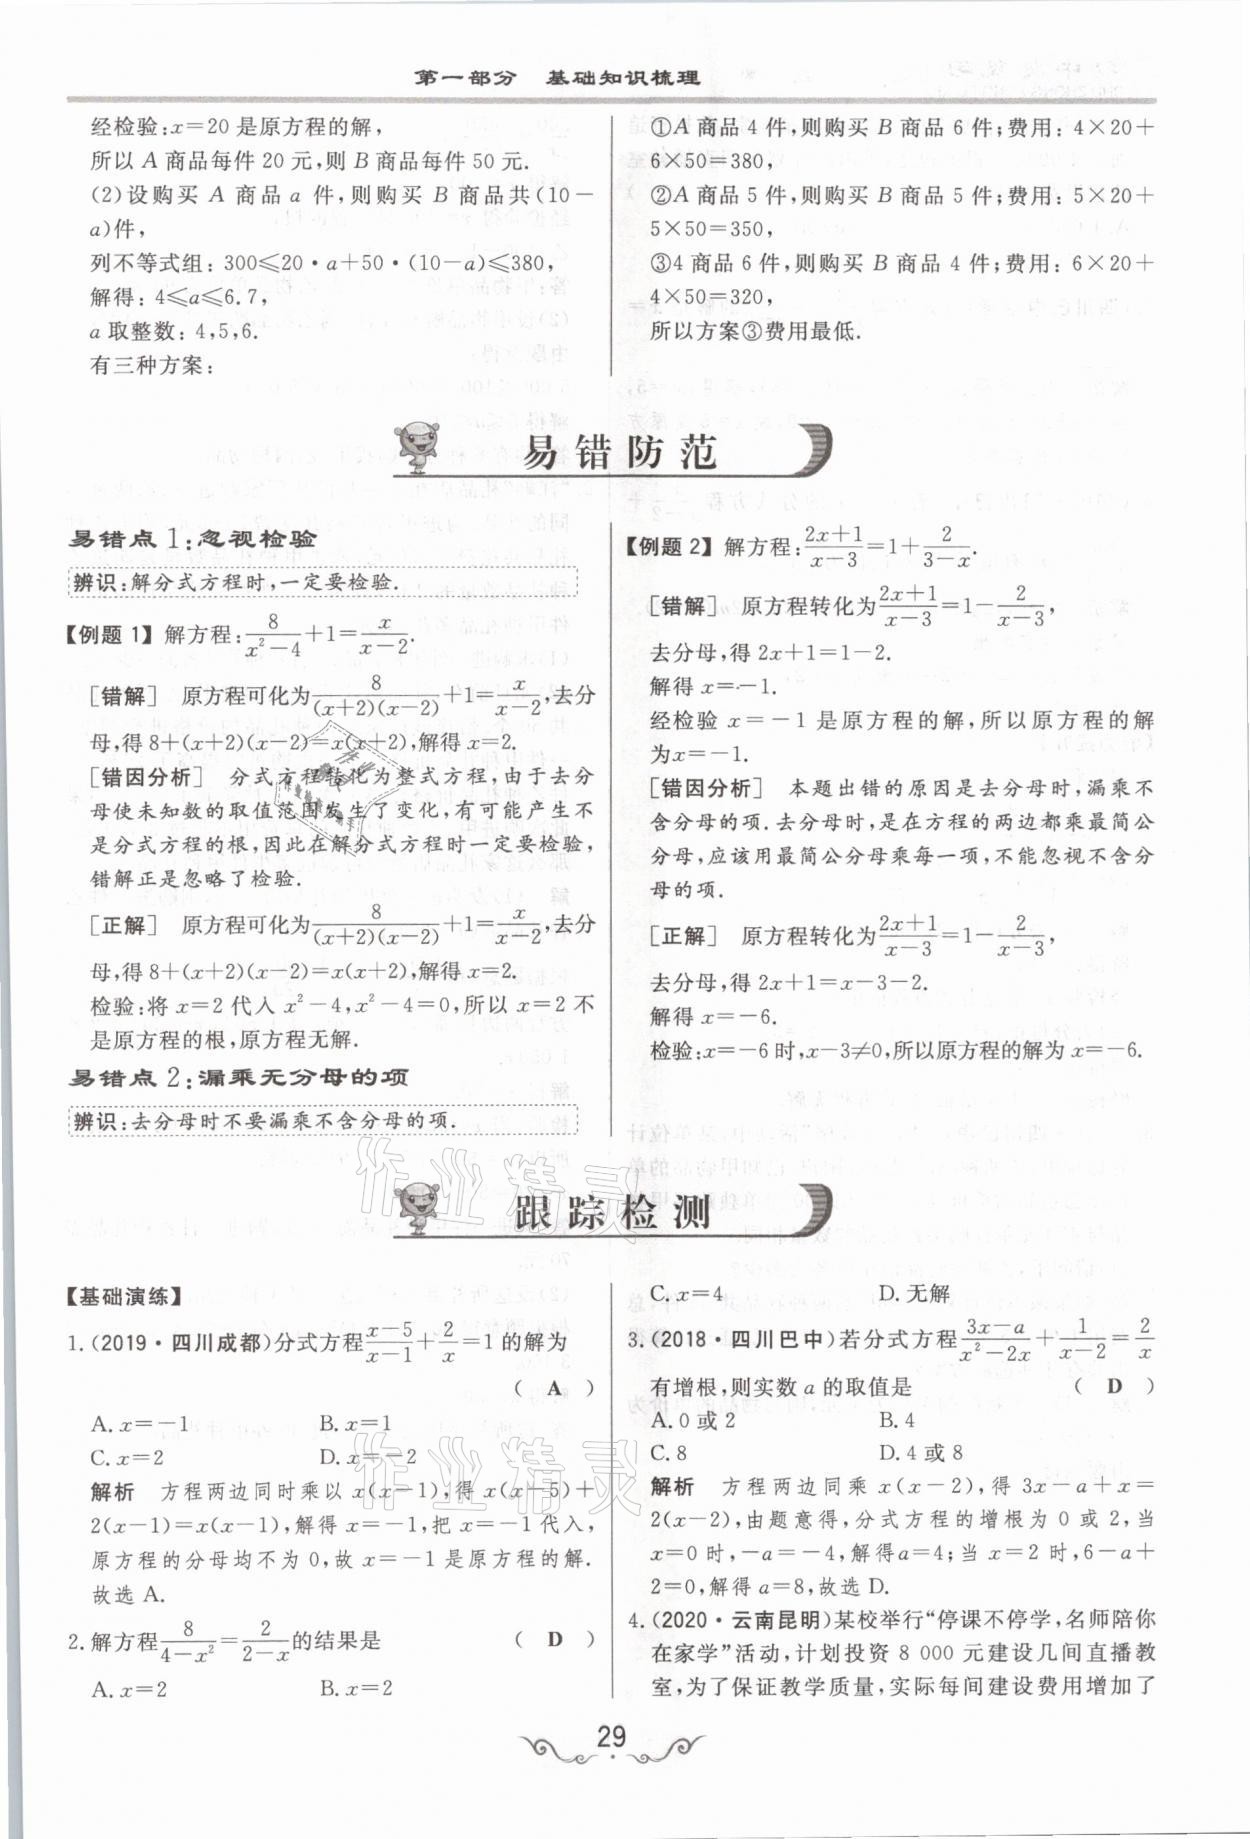 第一部分 基础知识梳理
经检验:x=20 是原方程的解,
所以 A 商品每件 20 元,则 B 商品每件 50 元.
(2)设购买 A 商品 a 件,则购买 B 商品共(10-
a)件,
列不等式组:300≤20·a+50·(10-a)≤380,
解得:4≤a≤6.7,
a 取整数:4,5,6.
有三种方案:
①A 商品 4 件,则购买 B 商品 6 件;费用:4×20+
6×50=380,
②A 商品 5 件,则购买 B 商品 5 件;费用:5×20+
5×50=350,
③4 商品 6 件,则购买 B 商品 4 件;费用:6×20+
4×50=320,
所以方案③费用最低.
易错防范
易错点 1:忽视检验
辨识:解分式方程时,一定要检验.
【例题 1】解方程:8/(x²-4)+1=x/(x-2).
[错解] 原方程可化为8/((x+2)(x-2))+1=x/(x-2),去分
母,得 8+(x+2)(x-2)=x(x+2),解得 x=2.
[错因分析] 分式方程转化为整式方程,由于去分
母使未知数的取值范围发生了变化,有可能产生不
是分式方程的根,因此在解分式方程时一定要检验,
错解正是忽略了检验.
[正解] 原方程可化为8/((x+2)(x-2))+1=x/(x-2),去分
母,得 8+(x+2)(x-2)=x(x+2),解得 x=2.
检验:将 x=2 代入 x²-4,x²-4=0,所以 x=2 不
是原方程的根,原方程无解.
易错点 2:漏乘无分母的项
辨识:去分母时不要漏乘不含分母的项.
【例题 2】解方程:(2x+1)/(x-3)=1+2/(3-x).
[错解] 原方程转化为(2x+1)/(x-3)=1-2/(x-3),
去分母,得 2x+1=1-2.
解得 x=-1.
经检验 x=-1 是原方程的解,所以原方程的解
为x=-1.
[错因分析] 本题出错的原因是去分母时,漏乘不
含分母的项.去分母时,是在方程的两边都乘最简公
分母,应该用最简公分母乘每一项,不能忽视不含分
母的项.
[正解] 原方程转化为(2x+1)/(x-3)=1-2/(x-3),
去分母,得 2x+1=x-3-2.
解得 x=-6.
检验:x=-6 时,x-3≠0,所以原方程的解为 x=-6.
跟踪检测
【基础演练】
1.(2019·四川成都)分式方程(x-5)/(x-1)+2/x=1 的解为
( A )
A.x=-1 B.x=1
C.x=2 D.x=-2
解析 方程两边同时乘以 x(x-1),得 x(x-5)+
2(x-1)=x(x-1),解得 x=-1,把 x=-1 代入,
原方程的分母均不为 0,故 x=-1 是原方程的解.
故选 A.
2.解方程8/(4-x²)=2/(2-x)的结果是 ( D )
A.x=2 B.x=2
C.x=4 D.无解
3.(2018·四川巴中)若分式方程(3x-a)/(x²-2x)+1/(x-2)=2/x
有增根,则实数 a 的取值是 ( D )
A.0 或 2 B.4
C.8 D.4 或 8
解析 方程两边同乘 x(x-2),得 3x-a+x=
2(x-2),由题意得,分式方程的增根为 0 或 2,当
x=0 时,-a=-4,解得a=4;当 x=2 时,6-a+
2=0,解得 a=8,故选 D.
4.(2020·云南昆明)某校举行“停课不停学,名师陪你
在家学”活动,计划投资 8 000 元建设几间直播教
室,为了保证教学质量,实际每间建设费用增加了
29
作业精灵
作业精灵